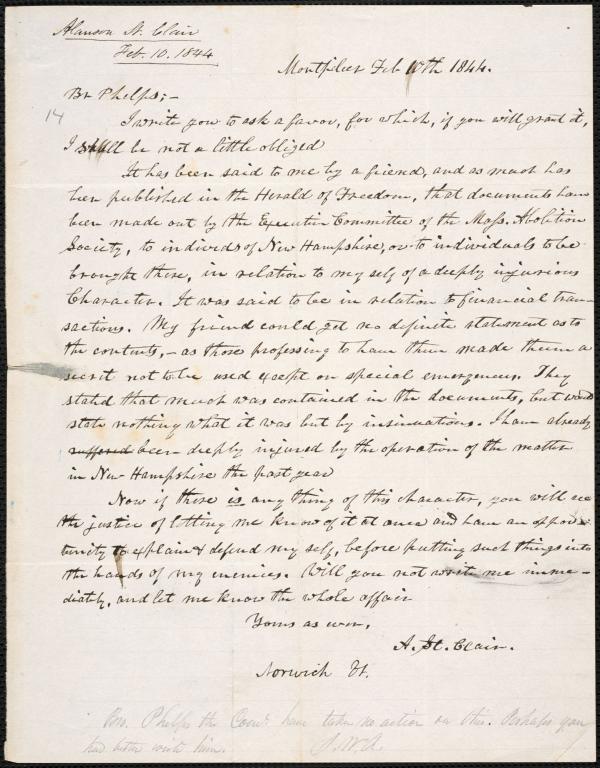 Alanson St. Clair
Feb. 10. 1844
Montpelier Feb 10th 1844.
Br Phelps;-
14
I write you to ask a favor, for which, if you will grant it,
I shall be not a little obliged
It has been said to me by a friend, and as much has
been published in the Herald of Freedom, that documents have
been made out by the Executive Committee of the Mass. Abolition
Society, to individs of New Hampshire, or to individuals to be
brought there, in relation to my self of a deeply injurious
Character. It was said to be in relation to financial tran-
sactions. My friend could get no definite statement as to
the contents,- as those professing to have them made them a
secret not to be used except on special emergences. They
stated that much was contained in the documents, but would
state nothing what it was but by insinuations. I have already
suffered been deeply injured by the operation of the matter
in New Hampshire the past year
Now if there is any thing of this character, you will see
the justice of letting me know of it at once and have an oppor-
tunity to explain & defend my self, before putting such things into
the hands of my enemies. Will you not write me imme-
diately, and let me know the whole affair
Yours as ever,
A. St. Clair.
Norwich Vt.
Bro. Phelps the Comee. have take no action on this. Perhaps you
had better write him. J.W.A.